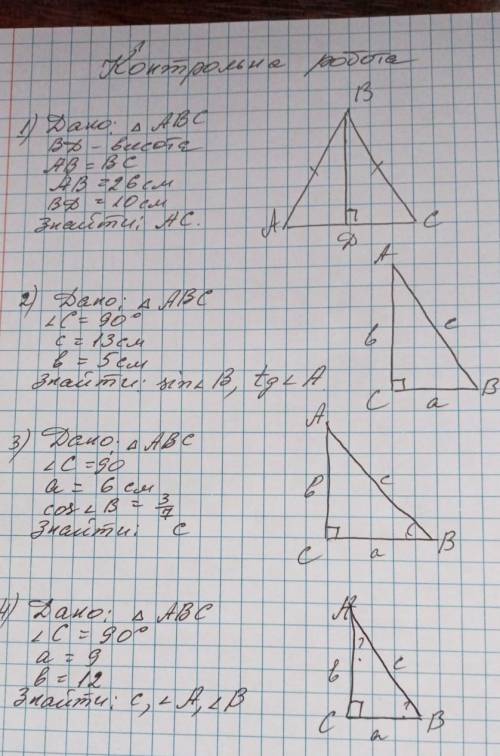 Контрольна робота
1) Дано: △ ABC
BD - висота
AB = BC
AB = 26 см
BD = 10 см
Знайти: AC.
B
A
D
C
2) Дано: △ ABC
∠C = 90°
c = 13 см
b = 5 см
Знайти: sin∠B, tg∠A
A
b
c
C
a
B
3) Дано: △ ABC
∠C = 90
a = 6 см
cos∠B = 3/7
Знайти: c
A
b
c
C
a
B
4) Дано: △ ABC
∠C = 90°
a = 9
b = 12
Знайти: c, ∠A, ∠B
A
?
b
c
C
a
B